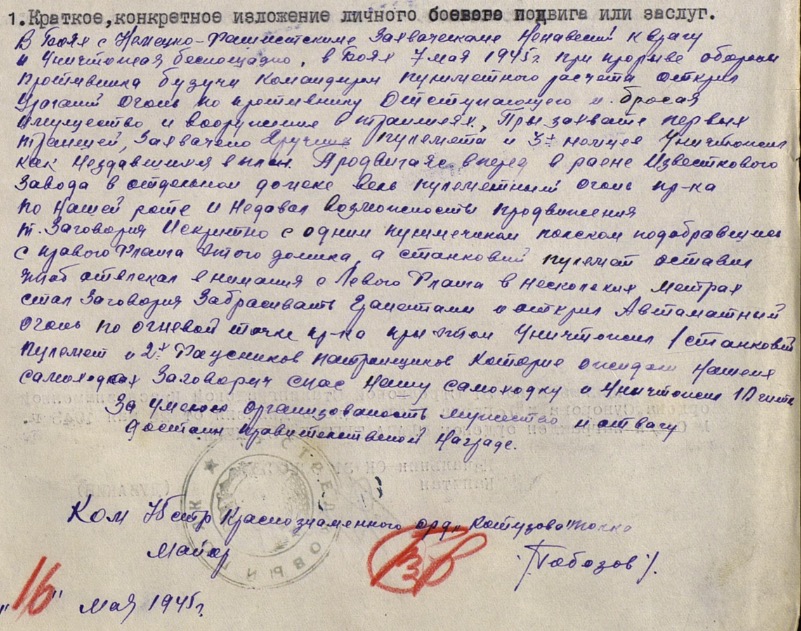 1. Краткое, конкретное изложение личного боевого подвига или заслуг.
В Боях с Немецко-Фашистскими Захватчиками Ненависен к врагу
и Уничтожая беспощадно, в боях 7 мая 1945 г при прорыве обороны
Противника будучи Командиром пулеметного расчета открыл
Ураганий огонь по противнику Отступающего и бросая
имущество и вооружения в траншеях, При захвате первых
траншей, Захвачено 2 ручных пулемета и 3х немцев Уничтожил
как Нездавшихся в плен. Продвигаяс вперед в раене Известкового
Завода в отдельном домеке вель пулеметный огонь пр-ка
по Нашей роте и Недавал Возможности продвижения
т. Заговория Искритно с одним пулеметчиком ползком подобравшис
с правого Фланга этого домика, а станковий пулемет оставил
чтоб отвлекал внимания с Левого Фланга в Нескольких метрах
стал Заговория Забрасивать Гранетами и открил Автаматний
огонь по огневой точке пр-ка при этом Уничтожил 1 станковий
пулемет и 2х Фаусников Которие ожидали Нашей
самоходки Заговорич спас Нашу самоходку и Уничтожил
За умелою организованость мужество и отвагу
достоин правителственой Награде.
Ком стр Краснознаменного орд. Кутузова полка
Майор Гобозов
"16" мая 1945 г.